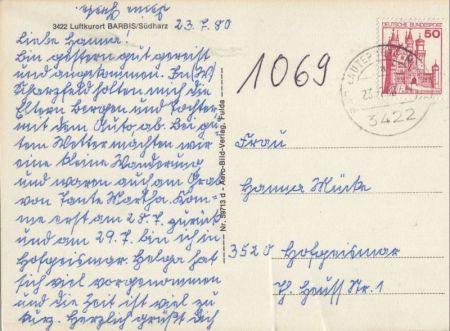 3422 Luftkurort BARBIS/Südharz
23.7.80
Liebe Hanna!
Bin gestern gut gereist
und angekommen. In (W)
Scharzfeld holten mich die
Eltern Bergen und Tochter
mit dem Auto ab. Bei gu-
tem Wetter machten wir
eine kleine Wanderung
und waren auch am Grab
von Tante Martha. Kom-
me erst am 28.7. zurück
und am 29.7. bin ich in
Hofgeismar. Helga hat
sich viel vorgenommen
und die Zeit ist viel zu
kurz. Herzlich grüßt Dich
Deine
Nr. 89713 d - Aero-Bild-Verlag, Fulda
1069
DEUTSCHE BUNDESPOST
50
3422
Frau
Hanna Mücke
3520 Hofgeismar
Th. Heuss Str. 1